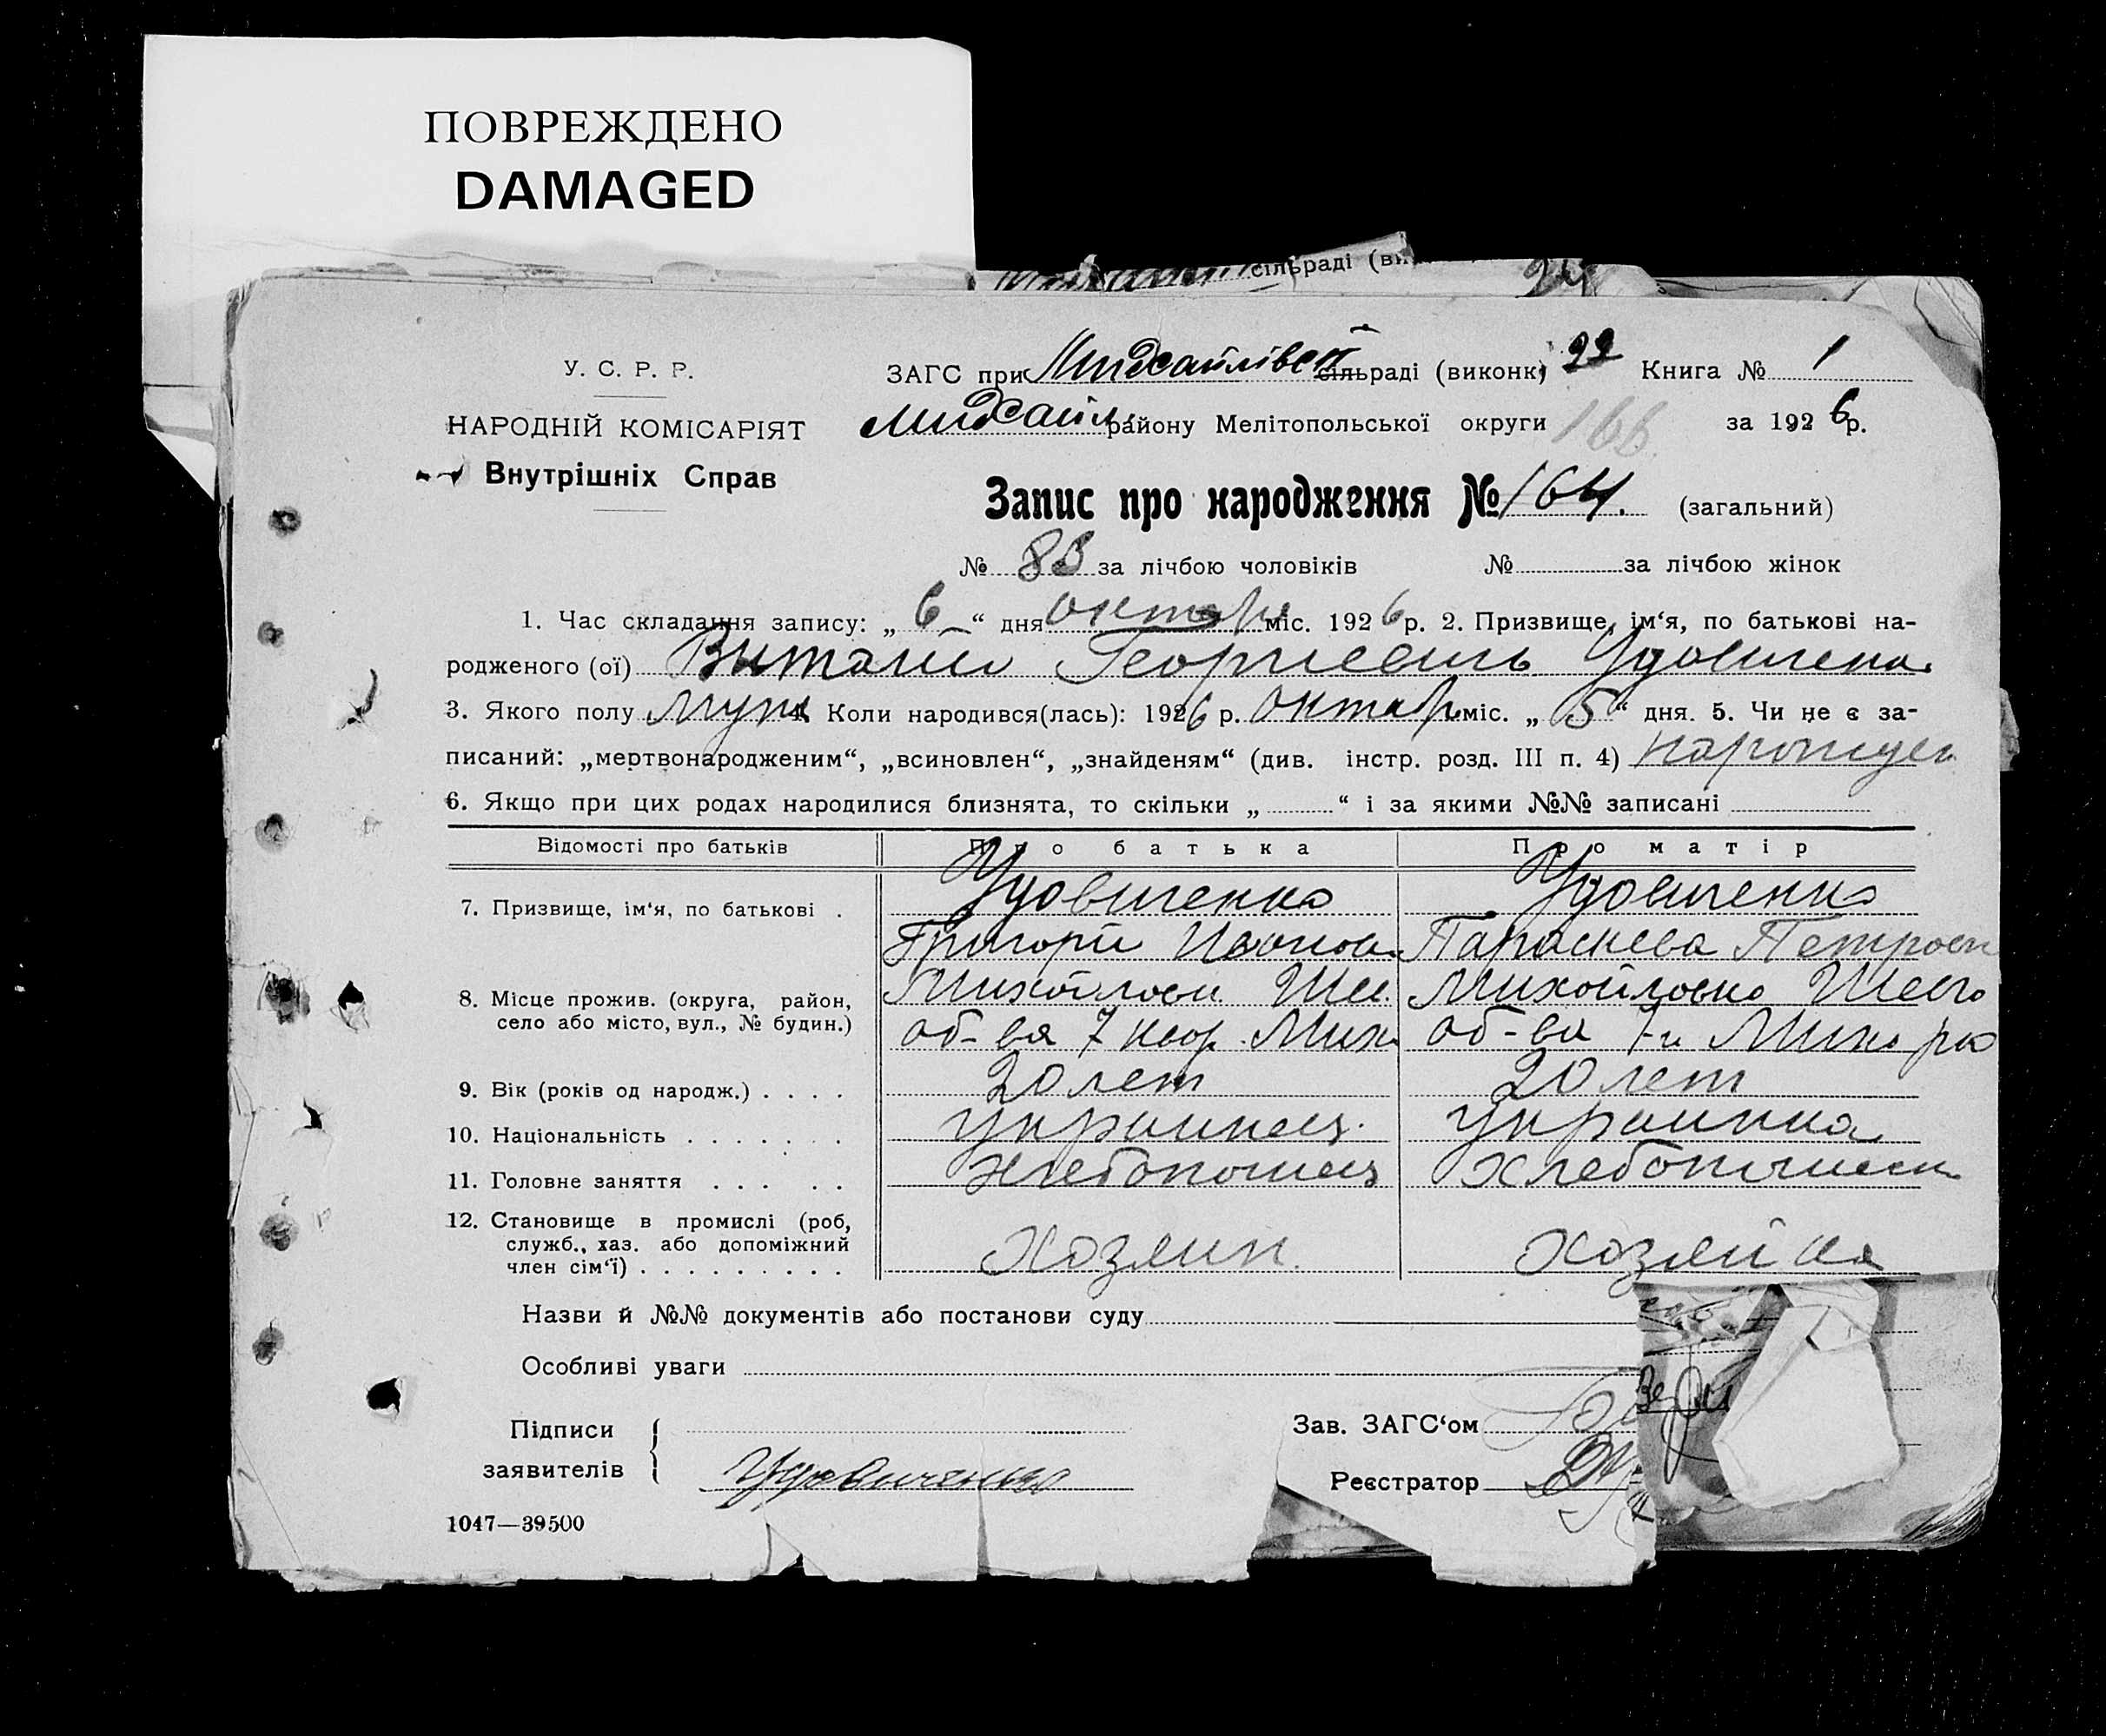 ПОВРЕЖДЕНО
DAMAGED
сільраді (ви
У. С. Р. Р.
НАРОДНІЙ КОМІСАРІЯТ
Внутрішніх Справ
ЗАГС при Михайлівск сільраді (виконк) 22 Книга № 1
Михайл. району Мелітопольської округи 166. за 1926 р.
Запис про народження № 164. (загальний)
№ 83 за лічбою чоловіків № за лічбою жінок
1. Час складання запису: „ 6 “ дня октября міс. 1926 р. 2. Призвище, ім‘я, по батькові на-
родженого (ої) Виталий Георгиевич Удовиченко
3. Якого полу муж 4. Коли народився(лась): 1926 р. октябр міс. „ 5 “ дня. 5. Чи не є за-
писаний: „мертвонародженим“, „всиновлен“, „знайденям“ (див. інстр. розд. III п. 4)
6. Якщо при цих родах народилися близнята, то скільки „ “ і за якими №№ записані
Відомості про батьків Про батька Про матір
7. Призвище, ім‘я, по батькові . Удовиченко Удовиченко
Григорій Иванов Параскева Петровн
8. Місце прожив. (округа, район, Михайловка Михайловка
село або місто, вул., № будин.) об-ва 7 Мих об-ва 7-и Мих рa
9. Вік (років од народж.) . . . . 20 лет 20 лет
10. Національність . . . . . . . украинец. украинка
11. Головне заняття . . . . . хлебопашец хлебопашец
12. Становище в промислі (роб,
служб., хаз. або допоміжний
член сім‘ї) . . . . . . . . . Хозяин. хозяйка
Назви й №№ документів або постанови суду
Особливі уваги
Підписи
заявителів Удовиченко
Зав. ЗАГС‘ом
Реєстратор
1047—39500